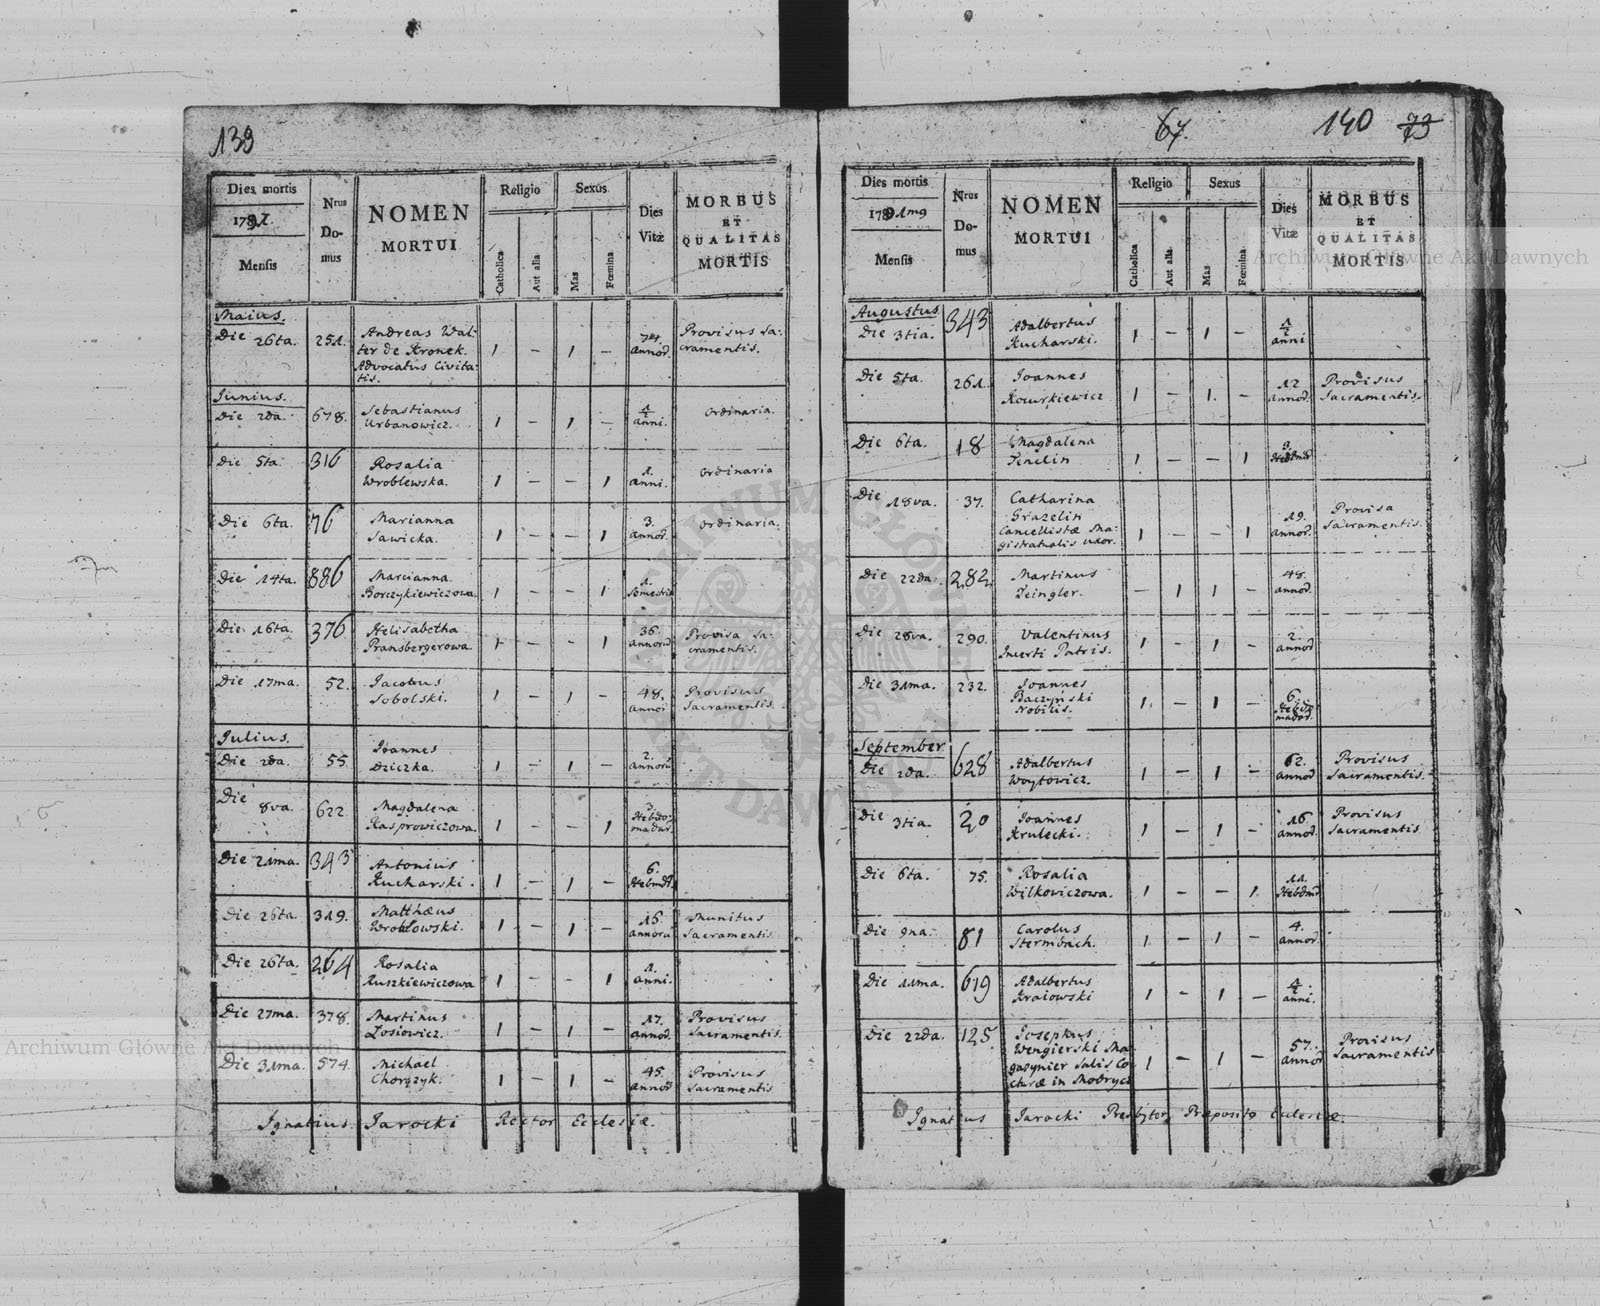 139
Dies mortis
1791.
Mensis
Nrus Do- mus
NOMEN
MORTUI
Religio
Catholica
Aut alia
Sexus
Mas
Fœmina
Dies Vitæ
MORBUS
ET
QUALITAS
MORTIS
Maius.
Die 26ta. 251. Andreas Wal- 1 – 1 – 74. Provisus Sa:
ter de Kronek. annor. cramentis.
Advocatus Civita:
tis.
Junius.
Die 2da. 678. Sebastianus 1 – 1 – 1/2 ordinaria.
Urbanowicz. anni.
Die 5ta. 316 Rosalia 1 – – 1 1. ordinaria
Wroblewska. anni.
Die 6ta. 76 Marianna 1 – – 1 3. ordinaria.
Sawicka. annor.
Die 14ta. 886 Marcianna 1 – – 1 1.
Borczykiewiczowa. Semestris
Die 16ta. 376 Helisabetha 1 – – 1 36. Provisa Sa:
Pransbergerowa. annor. cramentis.
Die 17ma. 52. Jacobus 1 – 1 – 48. Provisus
Sobolski. annor Sacramentis.
Julius.
Die 2da. 55. Joannes 1 – 1 – 2.
Dziczka. annor.
Die 8va. 622. Magdalena 1 – – 1 3.
Kasprowiczowa. Hebdo:
madar.
Die 21ma. 343 Antonius 1 – 1 – 6.
Kucharski.
Die 26ta. 319. Matthæus 1 – 1 – 16. Munitus
Wroblowski. Sacramentis
Die 26ta. 264 Rosalia 1 – – 1 1.
Ruszkiewiczowa anni.
Die 27ma. 378. Martinus 1 – 1 – 17. Provisus
Losiowicz. annor. Sacramentis.
Die 31ma. 574. Michael 1 – 1 – 45. Provisus
Chorązyk. annor Sacramentis
Ignatius Jarocki Rector Ecclesiæ.
67.
140
73
Dies mortis
1791mo
Mensis
Nrus Do- mus
NOMEN
MORTUI
Religio
Catholica
Aut alia
Sexus
Mas
Fœmina
Dies Vitæ
MORBUS
ET
QUALITAS
MORTIS
Augustus
Die 3tia. 343 Adalbertus 1 – 1 – 1/2
Kucharski. anni
Die 5ta. 261. Joannes 1 – 1. – 12 Provisus
Kocurkiewicz annor. Sacramentis.
Die 6ta. 18 Magdalena 1 – – 1
Die 18va. 37. Catharina 1 – – 1 19. Provisa
Grazelin annor. Sacramentis.
Cancellistæ Ma:
gistratualis uxor.
Die 22da. 282. Martinus – 1 1 – 48.
Teingler. annor.
Die 28va. 290. Valentinus 1 – 1 – 2.
Incerti Patris. annor
Die 31ma. 232. Joannes 1. – 1 – 6.
Baczyński Hebdo
Nobilis. madar.
September
Die 2da. 628 Adalbertus 1 – 1 – 62. Provisus
Woytowicz. annor Sacramentis.
Die 3tia. 20 Joannes 1 – 1 – 16 Provisus
Krulecki. annor. Sacramentis
Die 6ta. 75. Rosalia 1 – – 1. 11.
Wilkowiczowa.
Die 9na. 81 Carolus 1 – 1 – 4.
Stermbach. annor.
Die 11ma. 619 Adalbertus 1 – 1 –
Kraiowski anni.
Die 22da. 125 Josephus 1 – 1 – 57. Provisus
Wengierski Ma annor Sacramentis
gazynier Salis Co
cturæ in Modrycz
Ignatius Jarocki Presbyter, Præposito Ecclesiæ.
Archiwum Główne Akt Dawnych
Archiwum Główne Akt Dawnych
ARCHIWUM GŁÓWNE AKT DAWNYCH